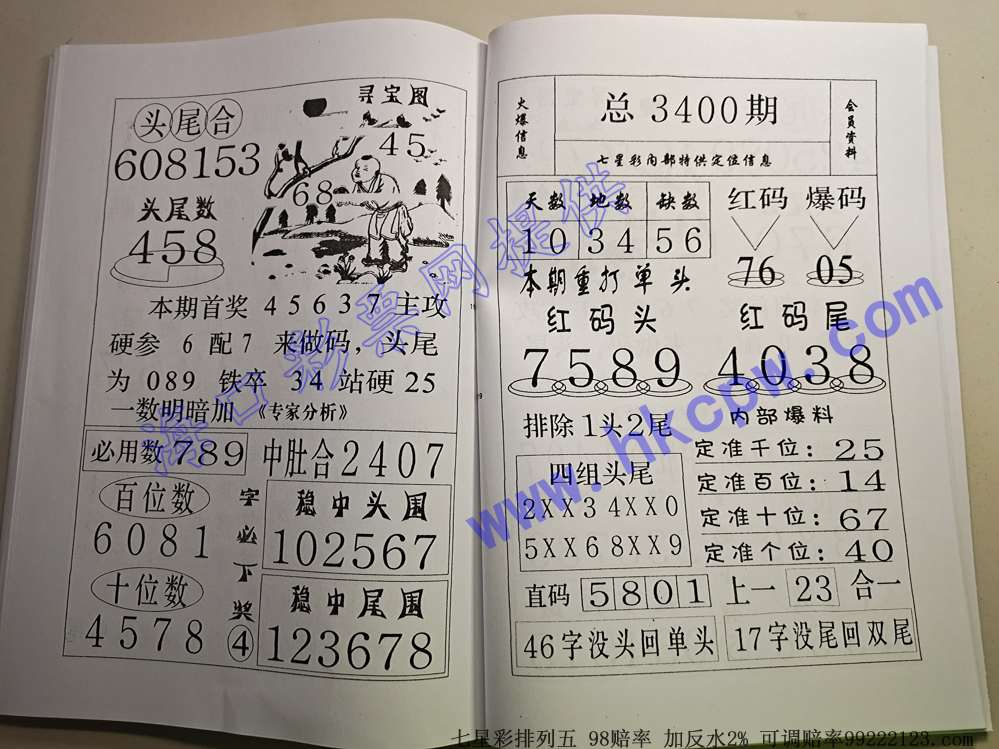 头尾合
608153
头尾数
458
寻宝图
45
68
本期首奖 45637 主攻
硬参 6 配7 来做码，头尾
为 089 铁卒 34 站硬 25
一数明暗加 《专家分析》
必用数 789
中肚合 2407
百位数
6081
十位数
4578
字必下奖④
稳中头围
102567
稳中尾围
123678
火爆信息
总 3400期
七星彩内部特供定位信息
会员资料
天数 地数 缺数
10 34 56
本期重打单头
红码 爆码
76 05
红码头
7589
红码尾
4038
排除1头2尾
四组头尾
2XX3 4XX0
5XX6 8XX9
内部爆料
定准千位：25
定准百位：14
定准十位：67
定准个位：40
直码 5801 上一 23 合一
46字没头回单头
17字没尾回双尾
海口彩票网提供
www.hkcpw.com
七星彩排列五 98赔率 加反水2% 可调赔率99222123.com